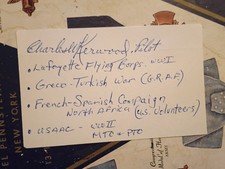 Charles Kerwood, Pilot
• Lafayette Flying Corps. WWI
• Greco-Turkish War (G.R.A.F)
• French-Spanish Campaign
North Africa (U.S. Volunteers)
• USAAC - WWII
MTO & PTO
NEW YORK